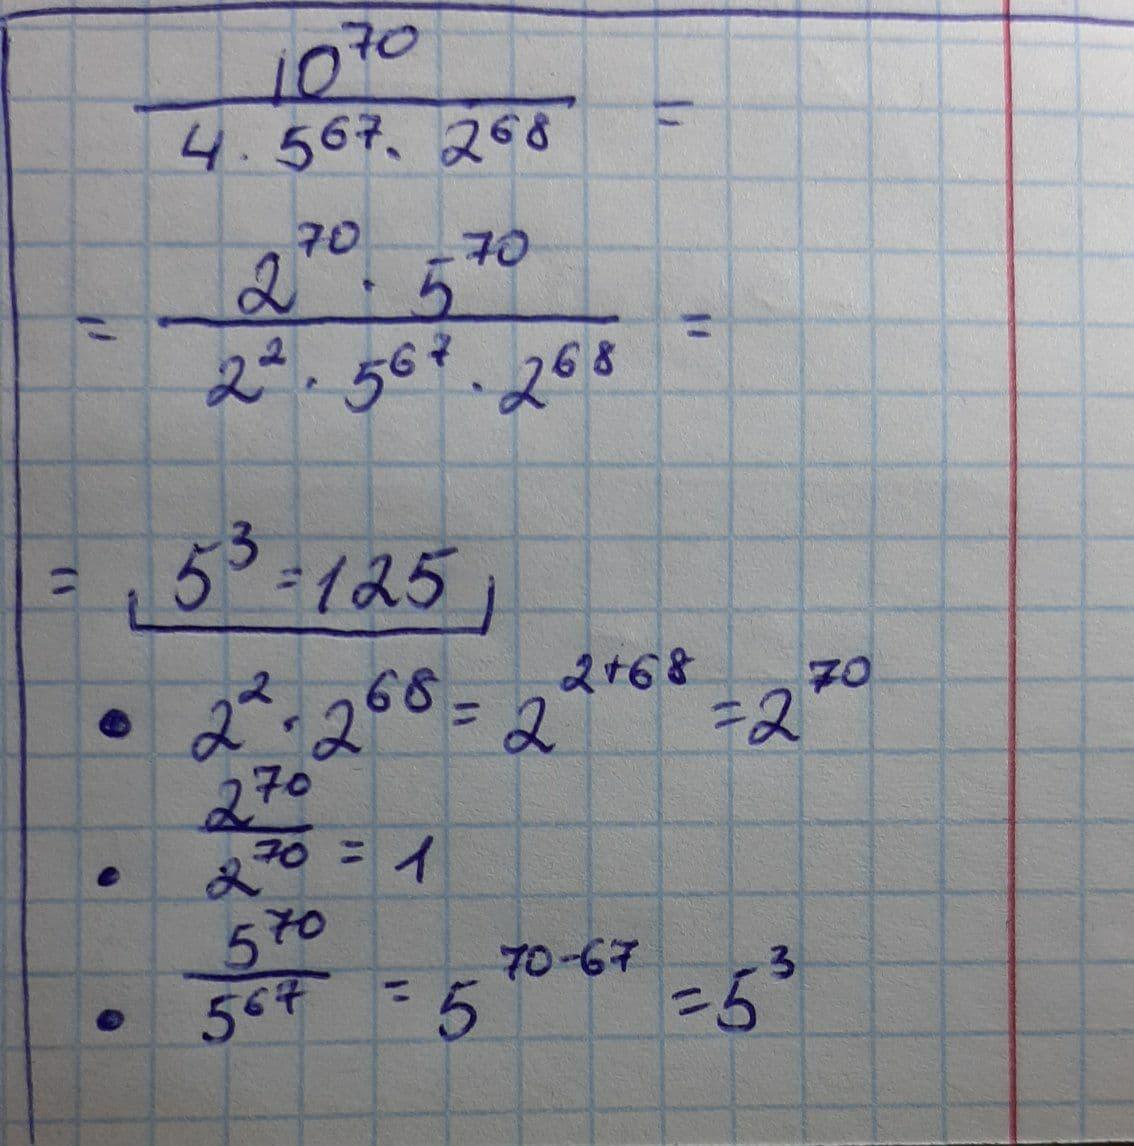 10^70
4 · 5^67 · 2^68 =
= 2^70 · 5^70
2^2 · 5^67 · 2^68 =
= 5^3 = 125
• 2^2 · 2^68 = 2^2+68 = 2^70
• 2^70
2^70 = 1
• 5^70
5^67 = 5^70-67 = 5^3